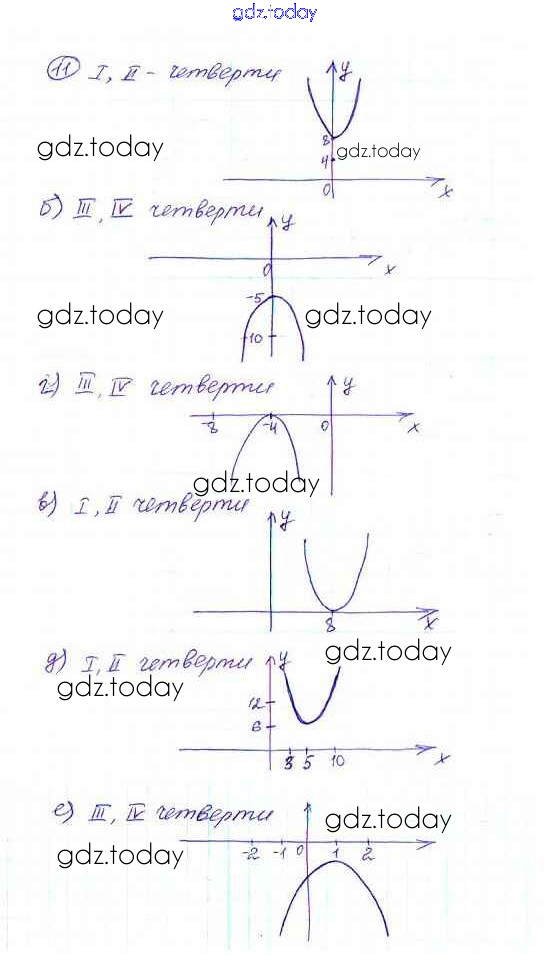 gdz.today
11 I, II - четверти
y
8
gdz.today
gdz.today
4
0
x
б) III, IV четверти
y
0
x
-5
gdz.today
gdz.today
-10
г) III, IV четверти
y
-8
-4
0
x
gdz.today
в) I, II четверти
y
8
x
gdz.today
д) I, II четверти
y
gdz.today
12
6
3 5 10
x
е) III, IV четверти
gdz.today
gdz.today
-2 -1 0 1 2